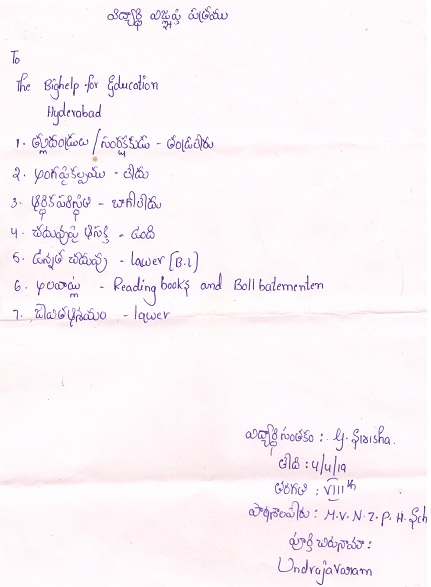 విద్యార్థి విజ్ఞప్తి పత్రము
To
The Bighelp for Education
Hyderabad
1. తల్లిదండ్రులు / సంరక్షకుడు - తండ్రిలేరు
2. అంగవైకల్యము - లేదు
3. ఆర్థిక పరిస్థితి - బాగాలేదు
4. చదువుపై ఆసక్తి - ఉంది
5. ఉన్నత చదువు - Lower (B.L)
6. అలవాట్లు - Reading books and Boll batementen
7. జీవిత ఆశయం - lawer
విద్యార్థి సంతకం : G. Sirisha.
తేది : 4/4/19
తరగతి : VIII th
పాఠశాల పేరు : M.V.N.Z.P.H. Sch
పూర్తి చిరునామా :
Undrajavaram